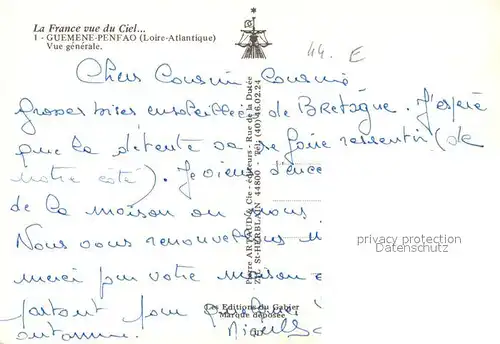 La France vue du Ciel...
1 - GUEMENE-PENFAO (Loire-Atlantique)
Vue générale.
44. E
Chers Cousin Cousine
Grosses bises ensoleillées de Bretagne. J'espère
que la détente va se faire ressentir (de
notre côté). Je viens d'ence
de la maison ou nous
Nous vous renouvellons
merci pour votre maison e
partout pour quelques
automne.
Pierre ARTAUD & Cie - éditeurs - Rue de la Dutée
Z.I. St-HERBLAIN 44800 - Tél. (40) 46.02.24
Les Editions du Gabier
Marque déposée
privacy protection
Datenschutz